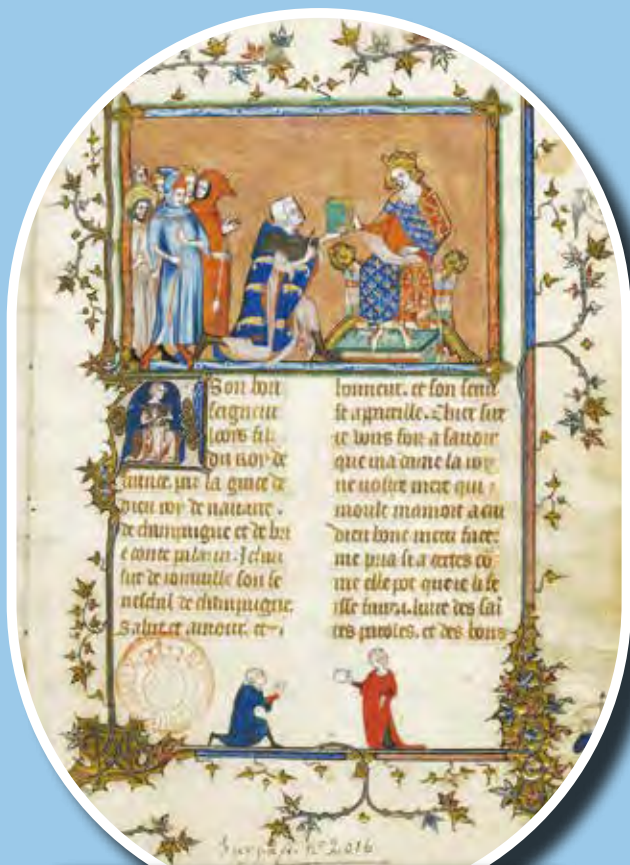 A Son bon
seigneur
looys filz
du roy de
france, par la grace de
dieu roy de nauarre.
de champaigne et de bri
e conte palazin. Jehan
sire de ioinuille son se
neschal de champaigne.
Salut et amour. et
honneur. et son seruise
appareille. Chier sire
ie vous foiz a sauoir
que ma dame la roy
ne vostre mere qui
moult mamoit a cui
dieu bone merci face.
me pria si a certes co
me elle pot que ie li fe
isse faire .i. liure des sai
tes paroles. et des bons
n° 2016